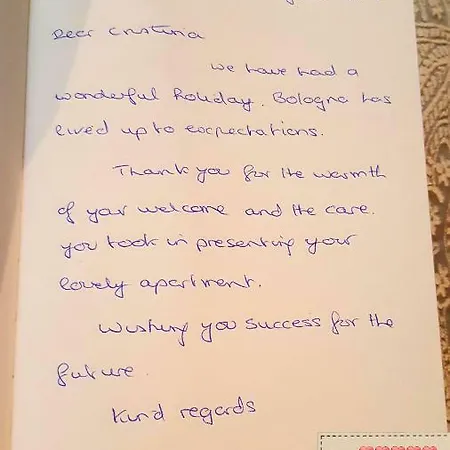 Dear Cristina
We have had a
wonderful holiday. Bologna has
lived up to expectations.
Thank you for the warmth
of your welcome and the care
you took in presenting your
lovely apartment.
Wishing you success for the
future.
Kind regards